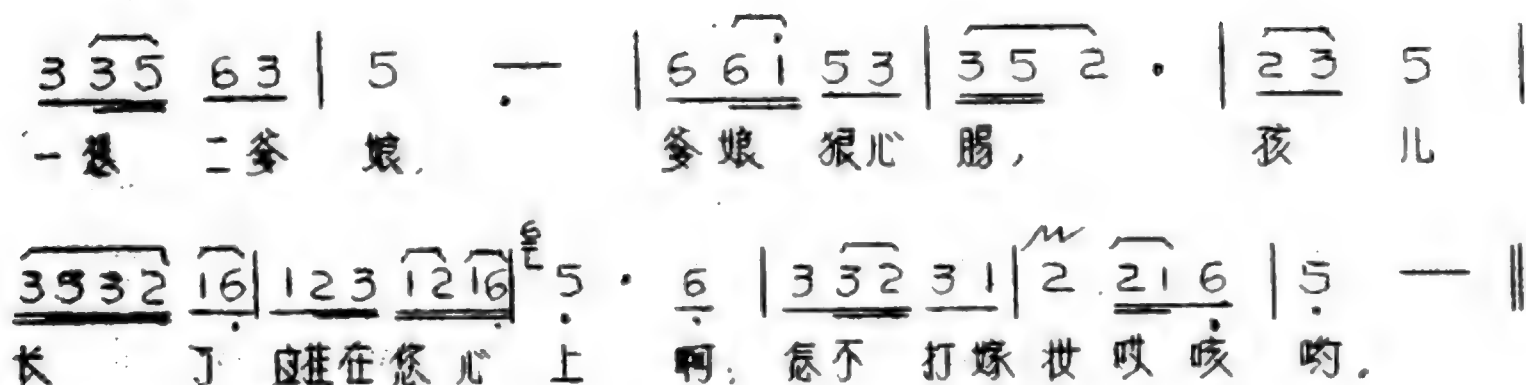 3 3 5 6 3 | 5 — | 6 6 i 5 3 | 3 5 2 · | 2 3 5 |
一想 二爹 娘. 爹娘 狠心 肠, 孩 儿
3 5 3 2 1 6 | 1 2 3 1 2 1 6 | 5 · 6 | 3 3 2 3 1 | 2 2 1 6 | 5 — ‖
长 了 应挂在您 心 上 啊; 怎不 打嫁妆 哎 咳 哟.